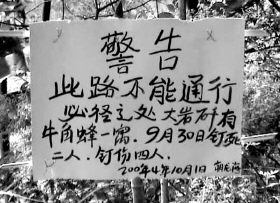 警告
此路不能通行
必径之处大岩砰有
牛角蜂一窝.9月30日钉死
二人.钉伤四人.
2004年10月1日